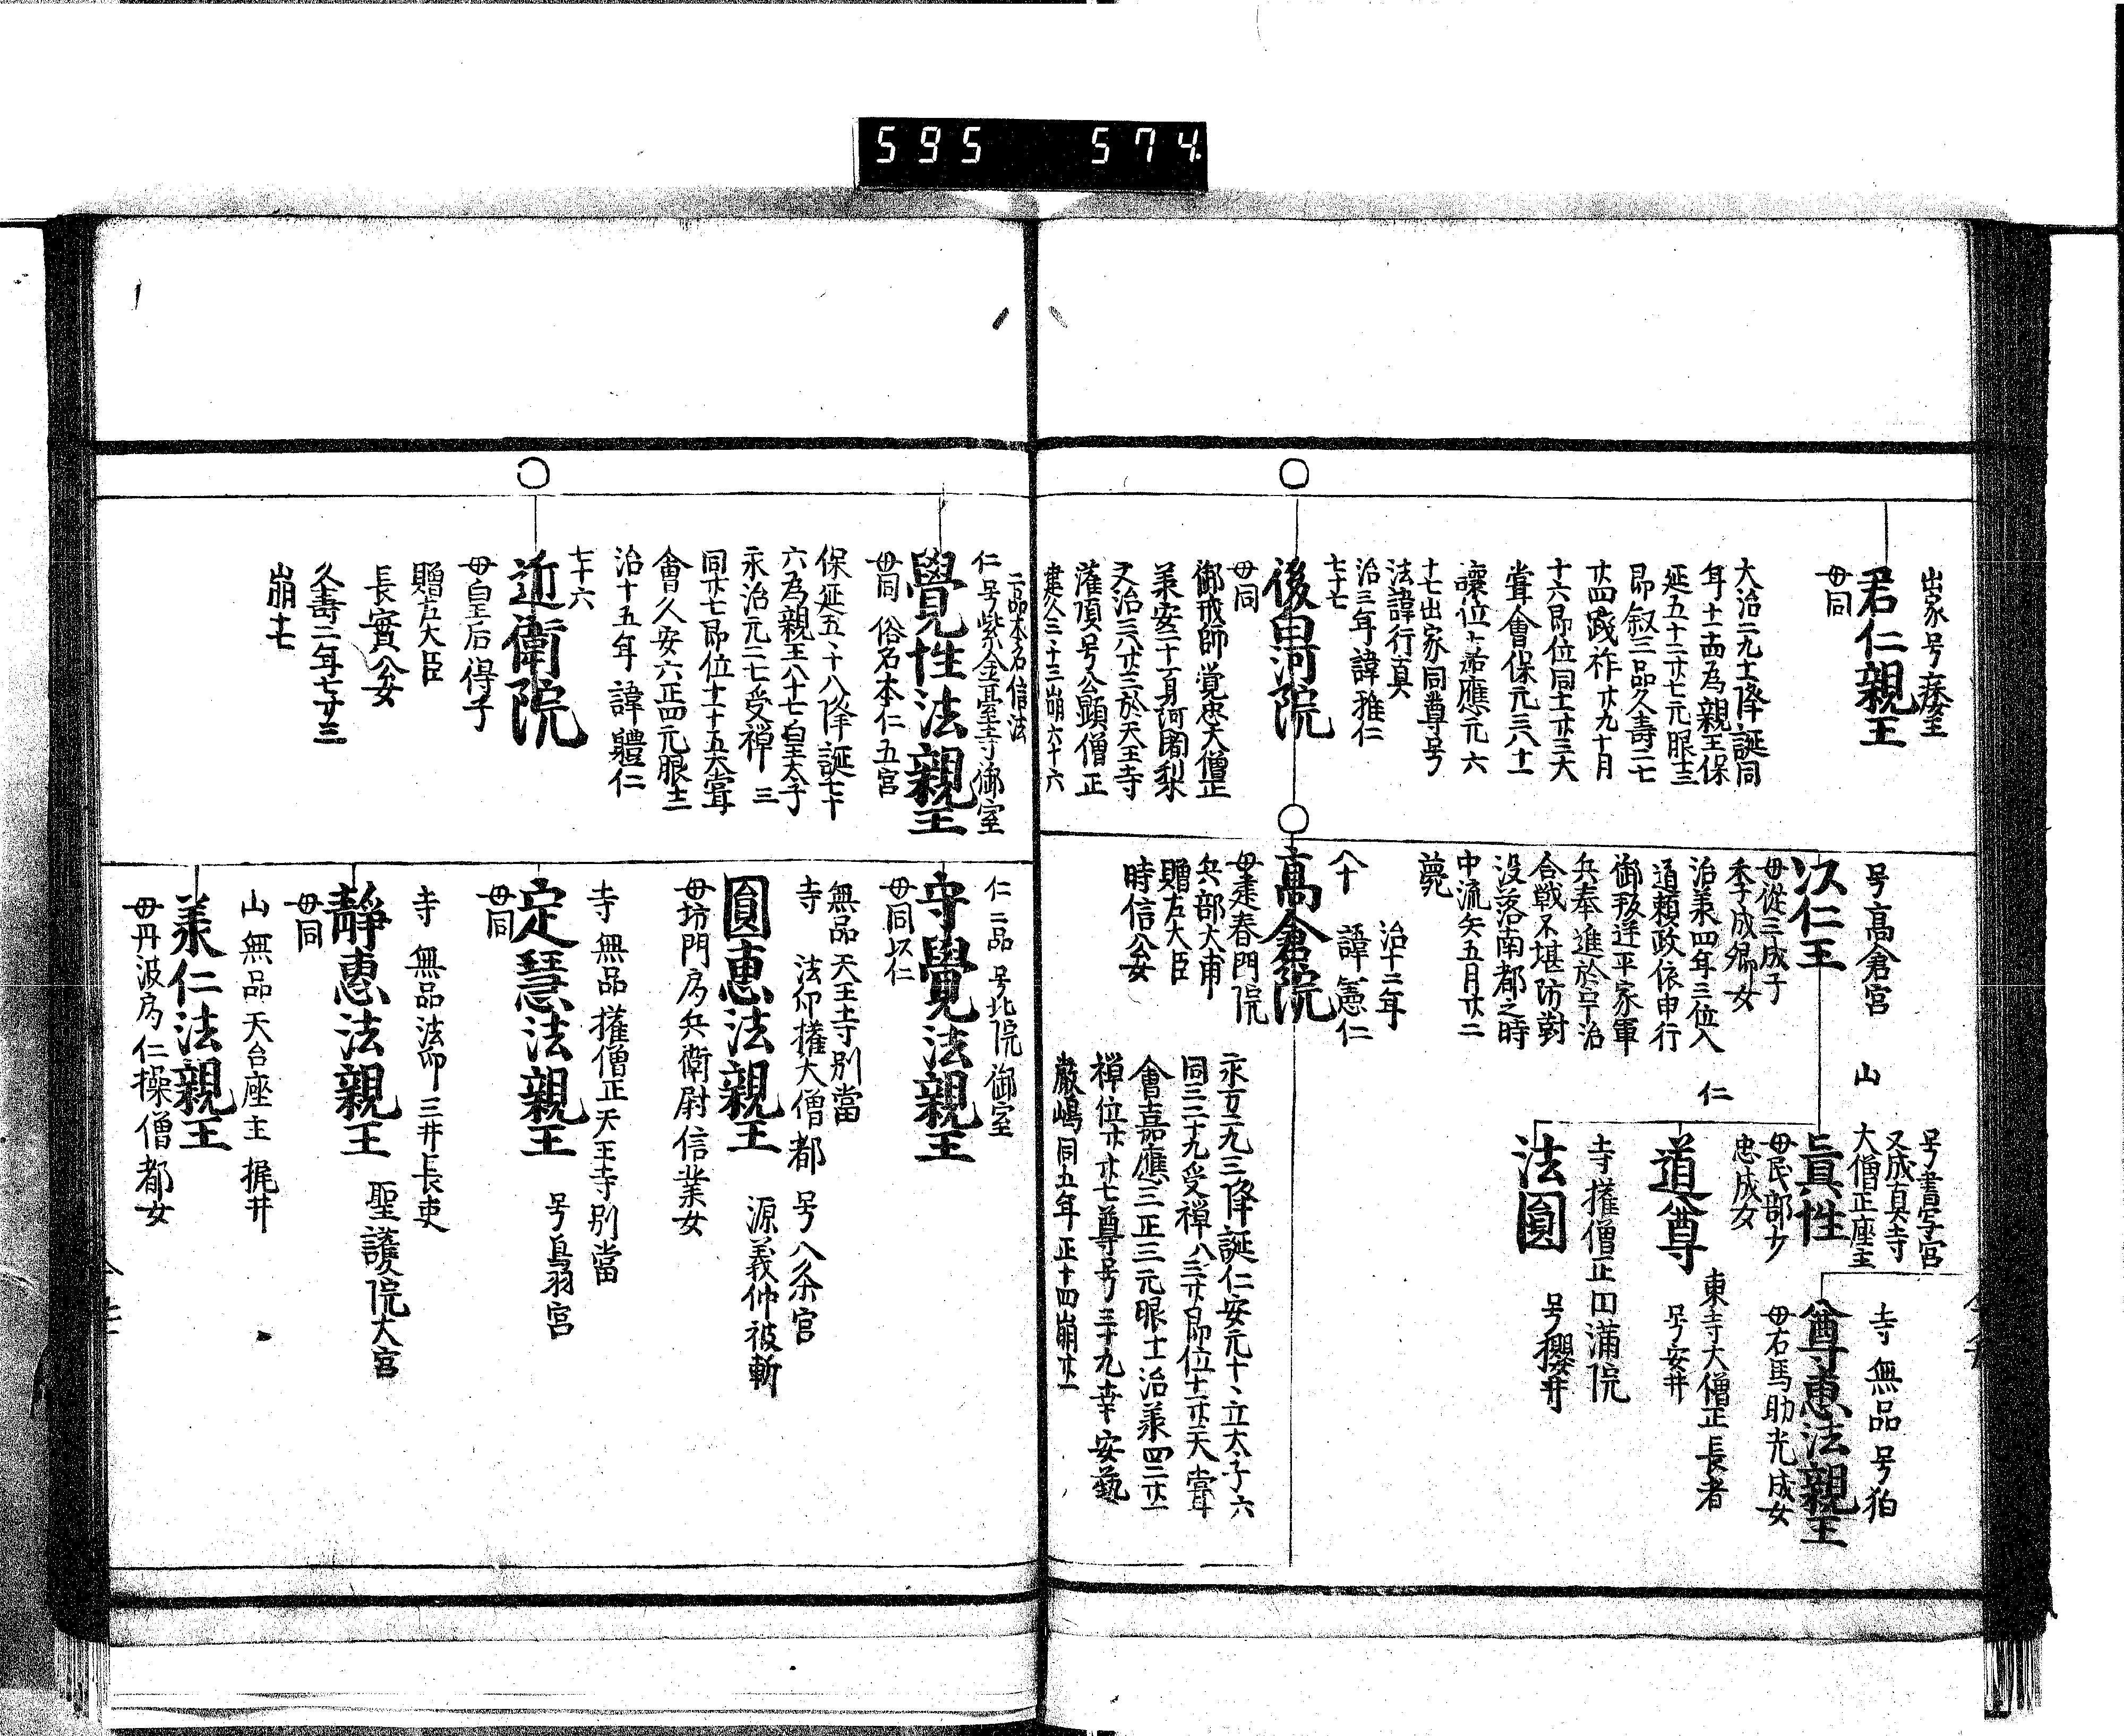 595 574
出家号痿王
君仁親王
母同
大治二九十一降誕同
年十一十四為親王保
延五十二廿七元服十二
即叙三品久壽二七
廿四踐祚廿九十月
十六即位同十一廿三大
甞會保元三八十一
讓位嘉應元六
十七出家同尊号
法諱行真
治三年諱雅仁
七十七
後白河院
母同
御戒師覚忠大僧正
承安二十一身阿闍梨
又治三八廿三於天王寺
灌頂号公顕僧正
建久三十三崩六十六
号高倉宮
以仁王
母從三成子
季成卿女
治承四年三位入
道頼政依申行
御叛逆平家軍
兵奉進於宇治
合戦不堪防對
没落南都之時
中流矢五月廿二
薨
治十二年
諱憲仁
八十
高倉院
母建春門院
兵部大甫
贈左大臣
時信公女
永万二九三降誕仁安元十、立太子六
同三二十九受禅八三廿即位十一廿二大甞
會嘉應三正三元服士治承四二廿一
禅位廿廿七尊号三十九幸安藝
厳嶋同五年正十四崩廿一
号書写宮
又成真寺
山 大僧正座主
眞性
母民部少
忠成女
仁
道尊
東寺大僧正長者
号安井
寺權僧正円満院
法圓
号櫻井
寺無品号狛
尊惠法親王
母右馬助光成女
二品本名信法
仁号紫金臺寺御室
覺性法親王
母同 俗名本仁五宮
保延五、十八降誕七十
六為親王八十七皇太子
永治元二七受禅三
同廿七即位十一十五大甞
會久安六正四元服士二
治十五年諱軆仁
七十六
近衛院
母皇后得子
贈左大臣
長實公女
久壽二年七廿三
崩十七
仁二品号北院御室
守覺法親王
母同以仁
無品天王寺別當
寺 法印權大僧都号八条宮
圓惠法親王
源義仲被斬
母坊門局兵衛尉信業女
寺無品權僧正天王寺別當
定慧法親王
号鳥羽宮
母同
寺無品法印三井長吏
靜惠法親王
聖護院大宮
母同
山無品天台座主梶井
承仁法親王
母丹波局仁操僧都女